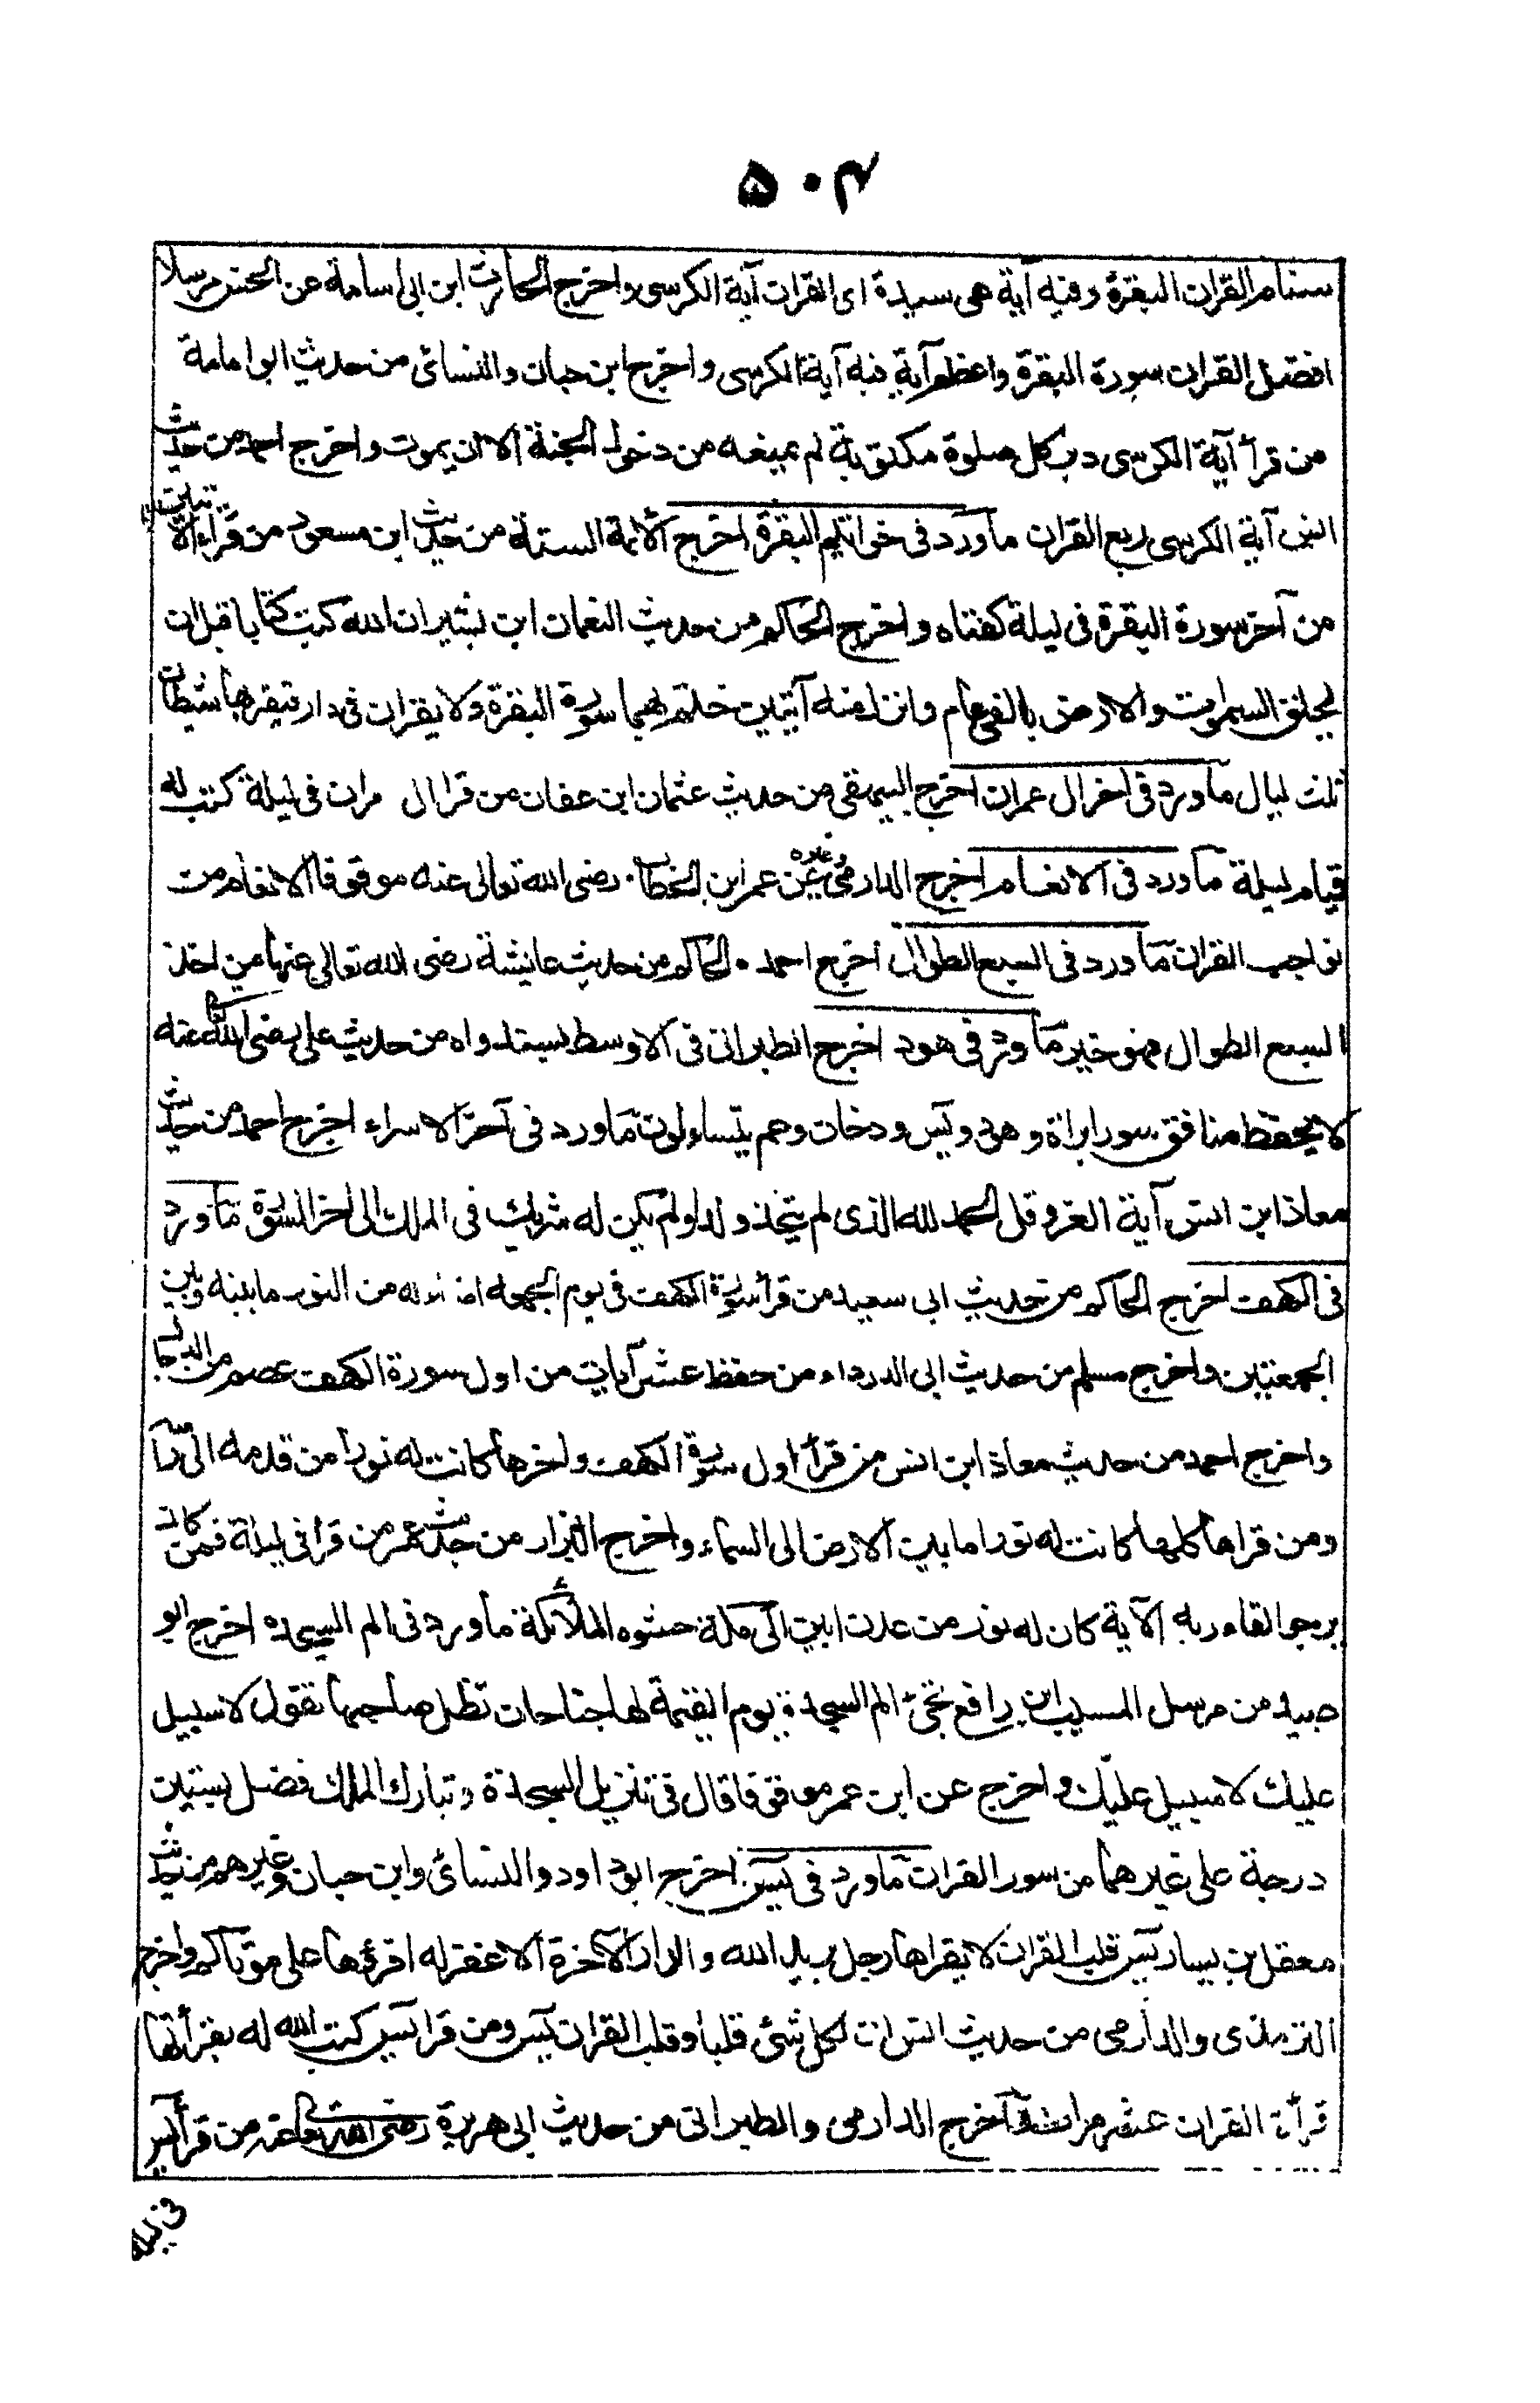 ٥٠٣
سنام القران البقرة وفيه آية هى سيدة اى القران آية الكرسى واخرج الحارث ابن ابى اسامة عن الحسن مرسلا
افضل القران سورة البقرة واعظم آية فيه آية الكرسى واخرج ابن حبان والنسائى من حديث ابو امامة
من قرأ آية الكرسى دبر كل صلوة مكتوبة لم يمنعه من دخول الجنة الا ان يموت واخرج احمد من حديث
انس آية الكرسى ربع القران ماورد فى خواتيم البقرة اخرج الائمة الستة من حديث ابن مسعود من قراء الآيتين
من آخر سورة البقرة فى ليلة كفتاه واخرج الحاكم من حديث النعمان ابن بشير ان الله كتب كتابا قبل ان
يخلق السموت والارض بالفى عام وانزل منه آيتين ختم بهما سورة البقرة ولا يقران فى دار فيقربها شيطان
ثلث ليال ماورد فى اخر ال عمران اخرج البيهقى من حديث عثمان ابن عفان من قرا ال مران فى ليلة كتب له
قيام ليلة ماورد فى الانعام اخرج الدارمى وغيره عن عمر ابن الخطاب رضى الله تعالى عنه موقوفا الانعام من
نواجب القران ماورد فى السبع الطوال اخرج احمد والحاكم من حديث عايشة رضى الله تعالى عنها من اخذ
السبع الطوال فهو خير ماورد فى هود اخرج الطبرانى فى الاوسط بسند واه من حديث على رضى الله عنه
لا يحفظ منافق سور براة وهود ويس ودخان وعم يتساءلون ماورد فى آخر الاسراء اخرج احمد من حديث
معاذ ابن انس آية العز وقل الحمد لله الذى لم يتخذ ولدا ولم يكن له شريك فى الملك الى اخر السورة ماورد
فى الكهف اخرج الحاكم من حديث ابى سعيد من قرأ سورة الكهف فى يوم الجمعه اضاء له من النور مابينه وبين
الجمعتين واخرج مسلم من حديث ابى الدرداء من حفظ عشر آيات من اول سورة الكهف عصم من الدجال
واخرج احمد من حديث معاذ ابن انس من قرأ اول سورة الكهف واخرها كانت له نورا من قدمه الى رأسه
ومن قراها كلها كانت له نورا مابين الارض الى السماء واخرج البزار من حديث عمر من قرأ فى ليلة فمن كان
يرجوا لقاء ربه الآية كان له نور من عدن ابين الى مكة حشوه الملأئكة ماورد فى الم السجده اخرج ابو
عبيد من مرسل المسيب ابن رافع تجئ الم السجدة يوم القيمة لها جناحان تظل صاحبها تقول لا سبيل
عليك لا سبيل عليك واخرج عن ابن عمر موقوفا قال فى تنزيل السجدة وتبارك الملك فضل بستين
درجة على غيرهما من سور القران ماورد فى يس اخرج ابو داود والنسائى وابن حبان وغيرهم من حديث
معقل بن يسار يس قلب القران لا يقراها رجل يريد الله والدار الآخرة الا غفر له اقرؤها على موتاكم واخرج
الترمذى والدارمى من حديث انس ان لكل شئ قلبا وقلب القران يس ومن قرا يس كتب الله له بقرأتها
قرأة القران عشر مرات اخرج الدارمى والطبرانى من حديث ابى هريرة رضى الله تعالى عنه من قرأ يس
فى ليلة